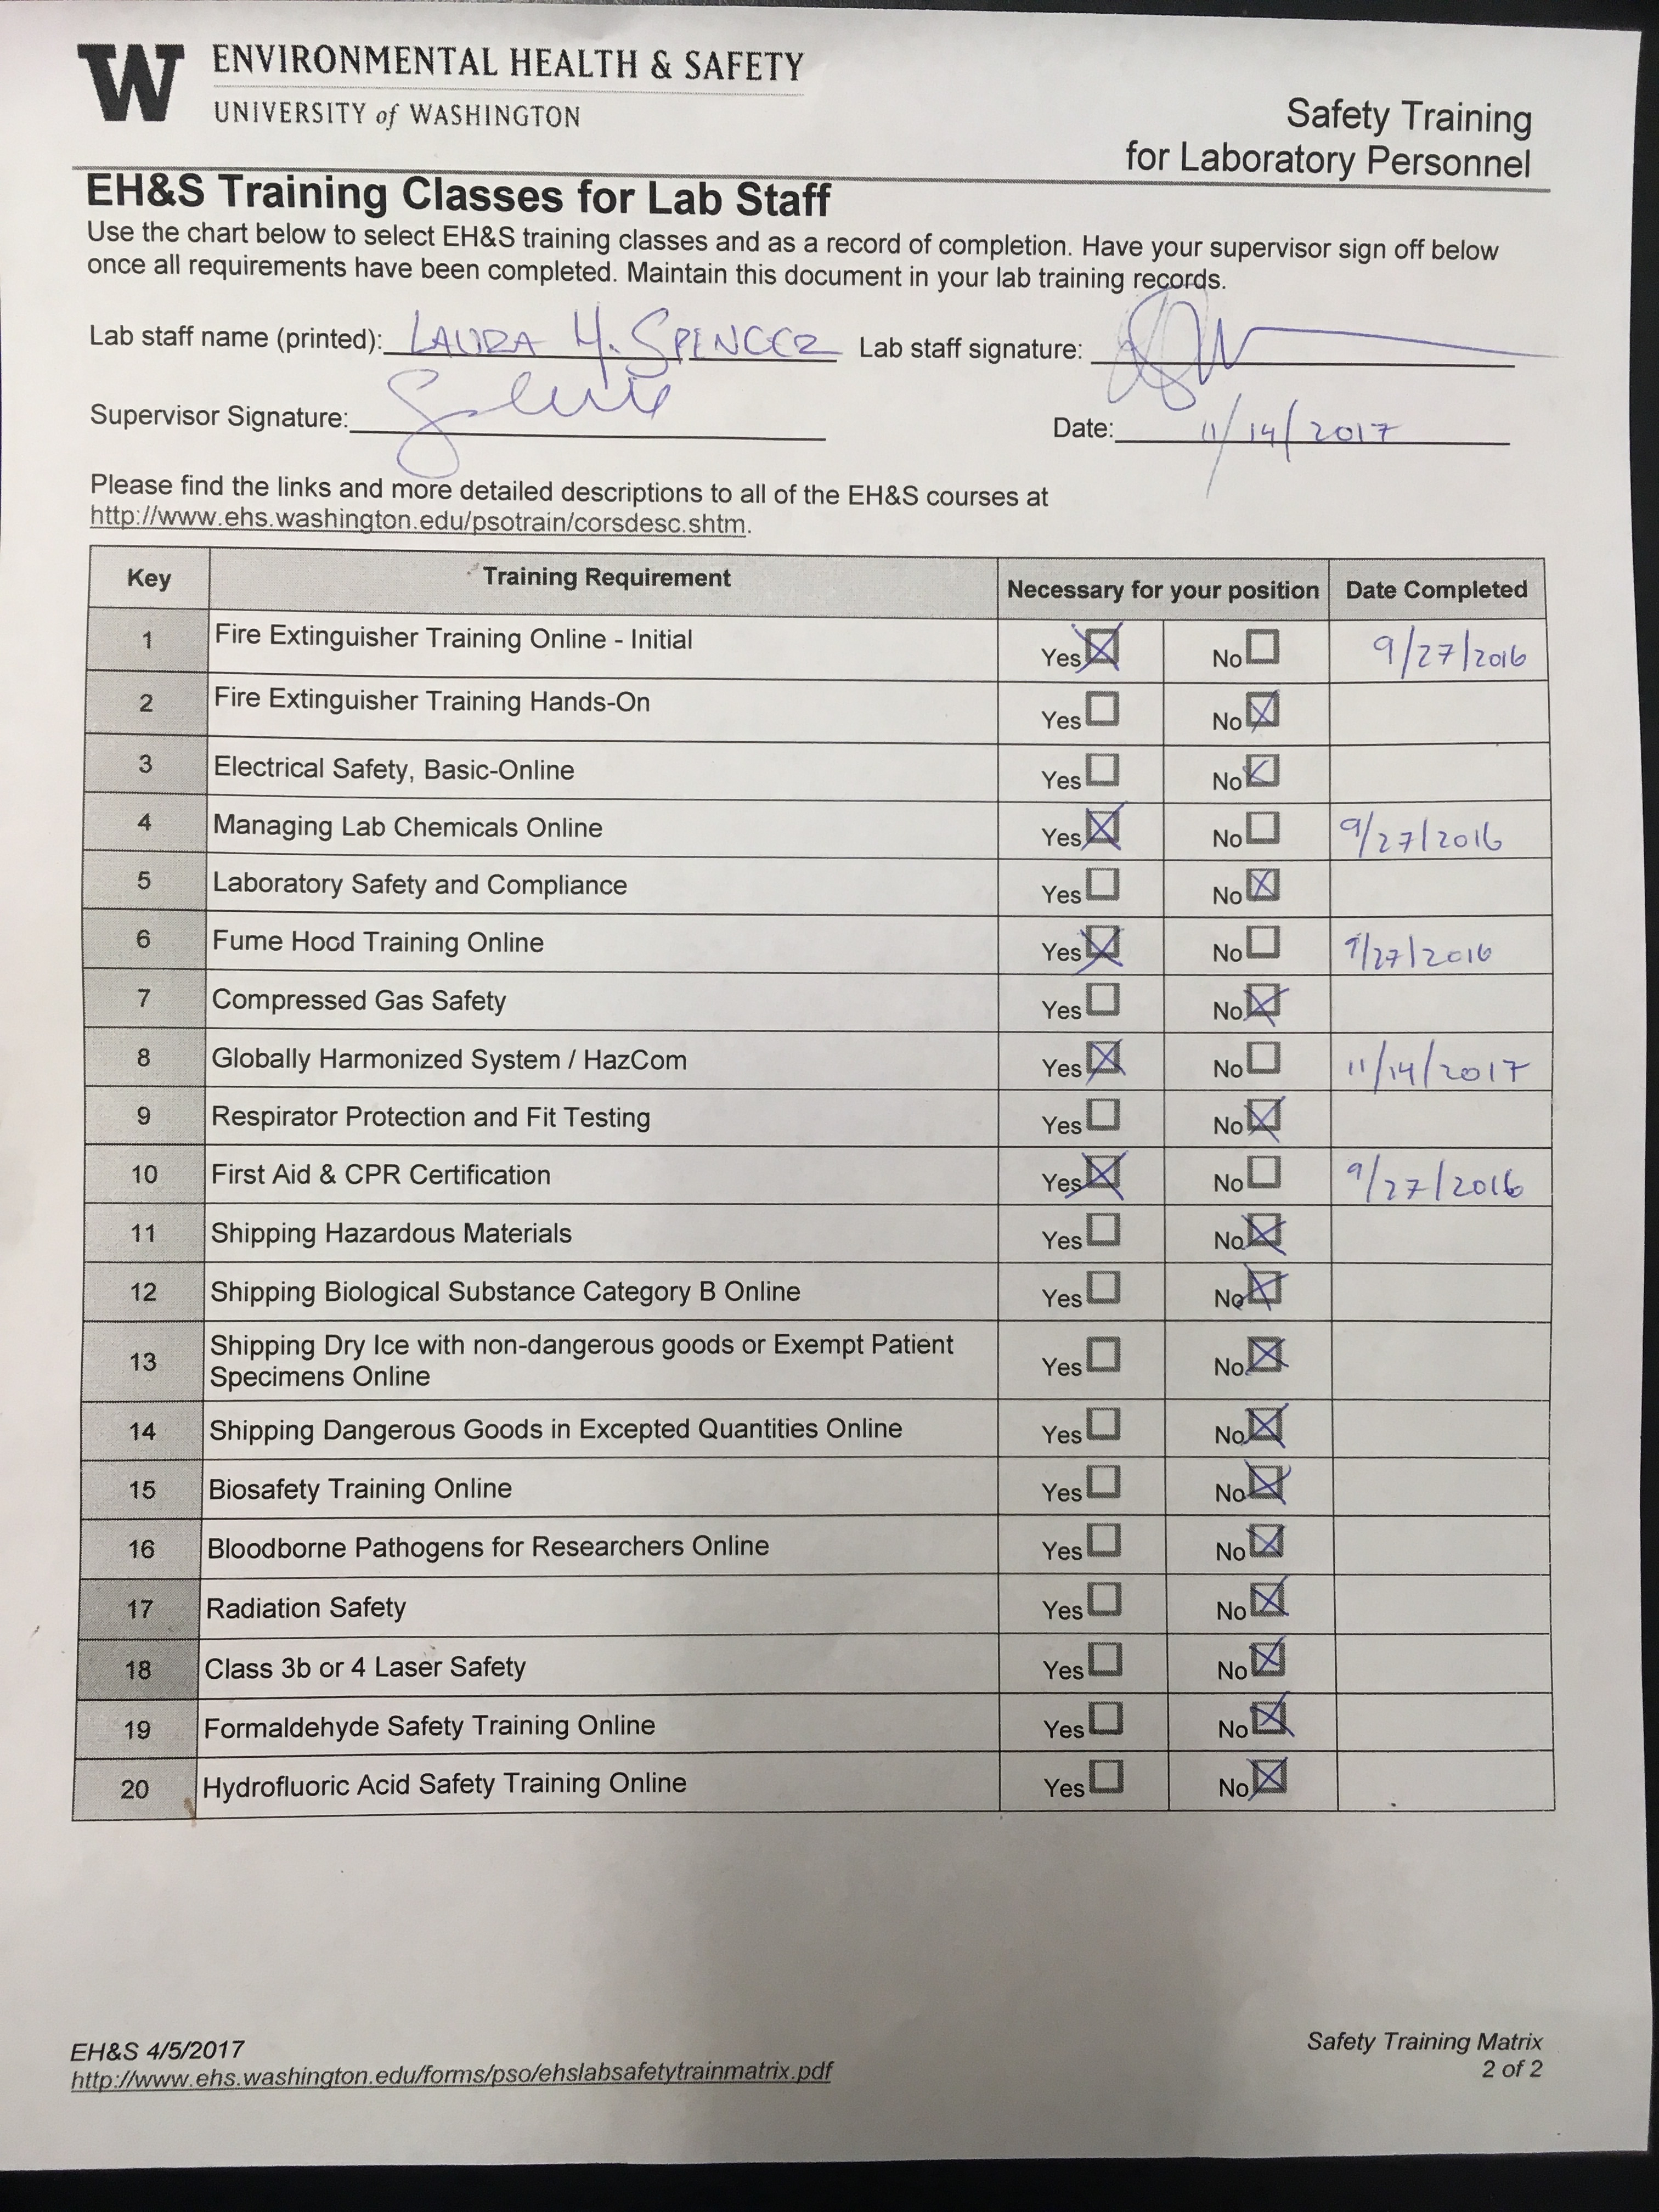 W
ENVIRONMENTAL HEALTH & SAFETY
UNIVERSITY of WASHINGTON
Safety Training
for Laboratory Personnel
EH&S Training Classes for Lab Staff
Use the chart below to select EH&S training classes and as a record of completion. Have your supervisor sign off below
once all requirements have been completed. Maintain this document in your lab training records.
Lab staff name (printed): LAURA H. SPENCER Lab staff signature:
Supervisor Signature: Date: 11/14/2017
Please find the links and more detailed descriptions to all of the EH&S courses at
http://www.ehs.washington.edu/psotrain/corsdesc.shtm.
Key Training Requirement Necessary for your position Date Completed
1 Fire Extinguisher Training Online - Initial Yes No 9/27/2016
2 Fire Extinguisher Training Hands-On Yes No
3 Electrical Safety, Basic-Online Yes No
4 Managing Lab Chemicals Online Yes No 9/27/2016
5 Laboratory Safety and Compliance Yes No
6 Fume Hood Training Online Yes No 9/27/2016
7 Compressed Gas Safety Yes No
8 Globally Harmonized System / HazCom Yes No 11/14/2017
9 Respirator Protection and Fit Testing Yes No
10 First Aid & CPR Certification Yes No 9/27/2016
11 Shipping Hazardous Materials Yes No
12 Shipping Biological Substance Category B Online Yes No
13 Shipping Dry Ice with non-dangerous goods or Exempt Patient
Specimens Online Yes No
14 Shipping Dangerous Goods in Excepted Quantities Online Yes No
15 Biosafety Training Online Yes No
16 Bloodborne Pathogens for Researchers Online Yes No
17 Radiation Safety Yes No
18 Class 3b or 4 Laser Safety Yes No
19 Formaldehyde Safety Training Online Yes No
20 Hydrofluoric Acid Safety Training Online Yes No
EH&S 4/5/2017
http://www.ehs.washington.edu/forms/pso/ehslabsafetytrainmatrix.pdf
Safety Training Matrix
2 of 2